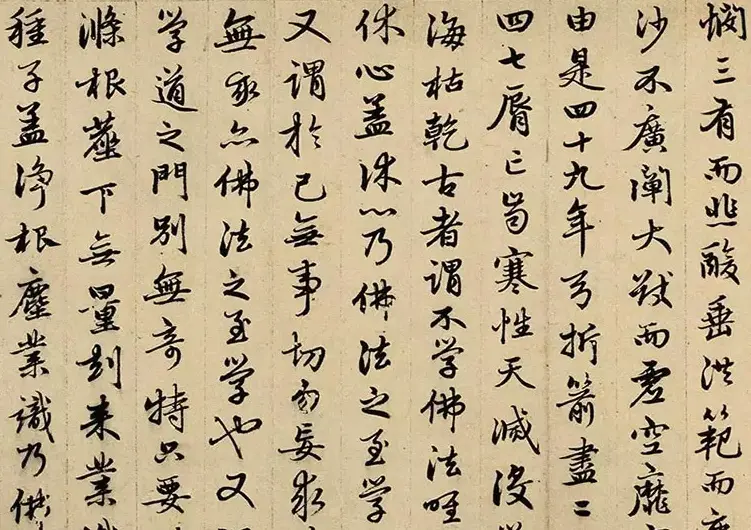 悯三有而悲酸垂洪範而
沙不廣闡大猷而虚空靡
由是四十九年弓折箭盡二
四七脣亡齒寒性天滅没
海枯乾古者謂不学佛法唯
休心盖休心乃佛法之至学
又謂於己無事切勿妄求
無求亦佛法之至学也又
学道之門別無奇特只要
滌根塵下無量劫来業
種子盖浄根塵業識乃佛